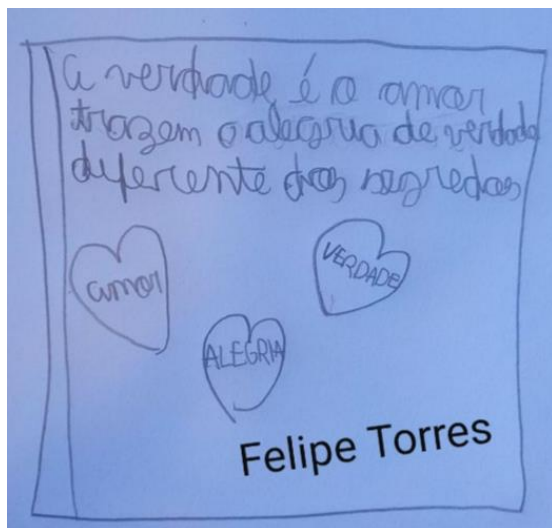 a verdade é o amor
trazem a alegria de verdade
diferente dos segredos
amor
VERDADE
ALEGRIA
Felipe Torres